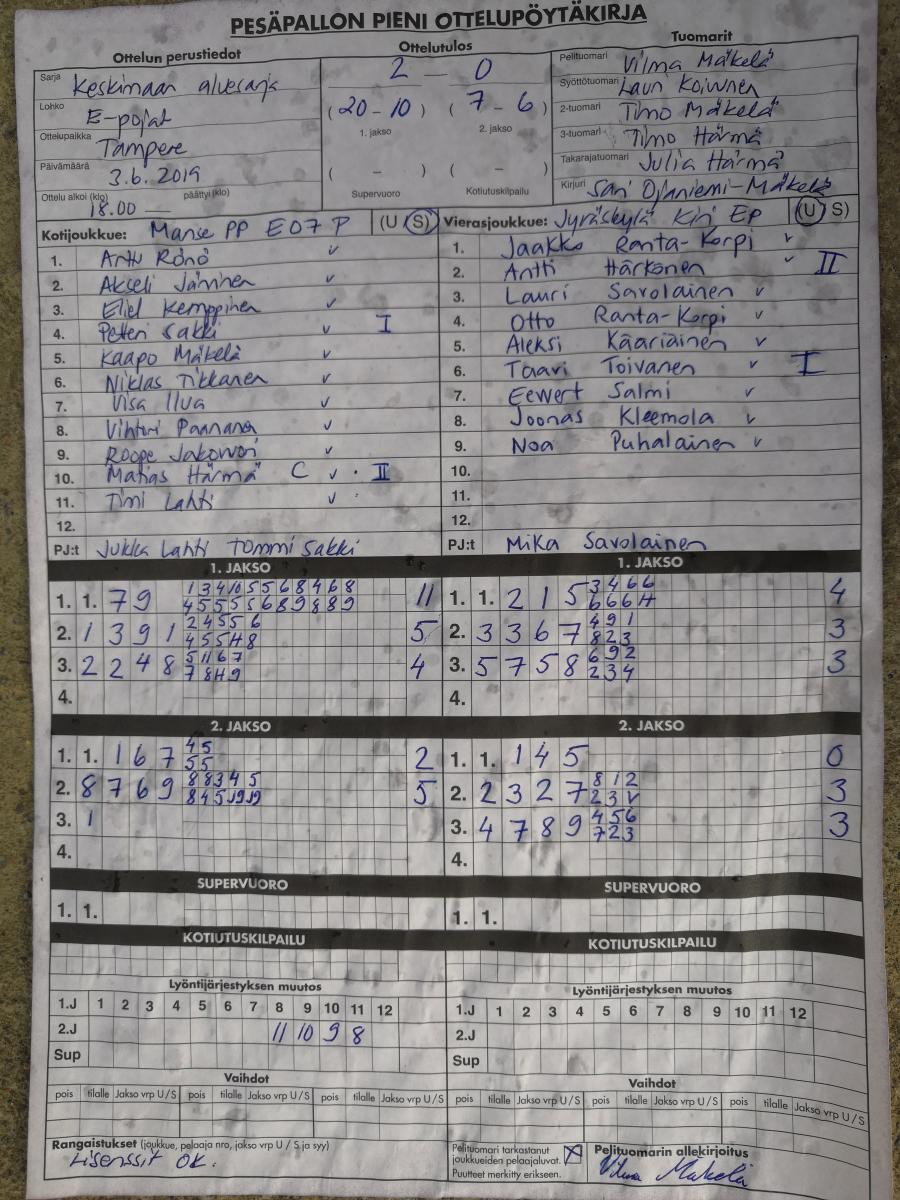 PESÄPALLON PIENI OTTELUPÖYTÄKIRJA
Ottelun perustiedot
Ottelutulos
Tuomarit
Sarja Keskimaan aluesarja
Lohko E-pojat
Ottelupaikka Tampere
Päivämäärä 3.6.2019
Ottelu alkoi (klo) 18.00 päättyi (klo)
2 – 0
(20 – 10) (7 – 6)
1. jakso 2. jakso
( – ) ( – )
Supervuoro Kotiutuskilpailu
Pelituomari Vilma Mäkelä
Syöttötuomari Lauri Koivunen
2-tuomari Timo Mäkelä
3-tuomari Timo Härmä
Takarajatuomari Julia Härmä
Kirjuri Sari Ojaniemi-Mäkelä
Kotijoukkue: Manse PP E07 P (U S)
1. Arttu Rönö v
2. Akseli Jäminen v
3. Eliel Kemppinen v
4. Petteri Sakki v I
5. Kaapo Mäkelä v
6. Niklas Tikkanen v
7. Visa Ilva v
8. Vihtori Paananen v
9. Roope v
10. Matias Härmä C v . II
11. Timi Lahti v
12.
PJ:t Jukka Lahti Tommi Sakki
Vierasjoukkue: Jyväskylä Kiri Ep (U S)
1. Jaakko Ranta-Korpi v
2. Antti Härkönen v II
3. Lauri Savolainen v
4. Otto Ranta-Korpi v
5. Aleksi Kääriäinen v
6. Taavi Toivanen v I
7. Eewert Salmi v
8. Joonas Kleemola v
9. Noa Puhalainen v
10.
11.
12.
PJ:t Mika Savolainen
1. JAKSO
1. 1. 7 9 1 3 4 10 5 5 6 8 4 6 8 11
4 5 5 5 5 6 8 9 8 8 9
2. 1 3 9 1 2 4 5 5 6 5
4 5 5 H 8
3. 2 2 4 8 5 11 6 7 4
7 8 H 9
4.
1. JAKSO
1. 1. 2 1 5 3 4 6 6 4
6 6 6 H
2. 3 3 6 7 4 9 1 3
8 2 3
3. 5 7 5 8 6 9 2 3
2 3 4
4.
2. JAKSO
1. 1. 1 6 7 4 5 2
5 5
2. 8 7 6 9 8 8 3 4 5 5
8 4 5
3. 1
4.
2. JAKSO
1. 1. 1 4 5 0
2. 2 3 2 7 8 1 2 3
2 3 V
3. 4 7 8 9 4 5 6 3
7 2 3
4.
SUPERVUORO
1. 1.
SUPERVUORO
1. 1.
KOTIUTUSKILPAILU
KOTIUTUSKILPAILU
Lyöntijärjestyksen muutos
1.J 1 2 3 4 5 6 7 8 9 10 11 12
2.J 11 10 9 8
Sup
Lyöntijärjestyksen muutos
1.J 1 2 3 4 5 6 7 8 9 10 11 12
2.J
Sup
Vaihdot
pois tilalle Jakso vrp U/S pois tilalle Jakso vrp U/S pois tilalle Jakso vrp U/S
Vaihdot
pois tilalle Jakso vrp U/S pois tilalle Jakso vrp U/S pois tilalle Jakso vrp U/S
Rangaistukset (joukkue, pelaaja nro, jakso vrp U / S ja syy)
Lisenssit OK.
Pelituomari tarkastanut
joukkueiden pelaajaluvat. X
Puutteet merkitty erikseen.
Pelituomarin allekirjoitus
Vilma Mäkelä